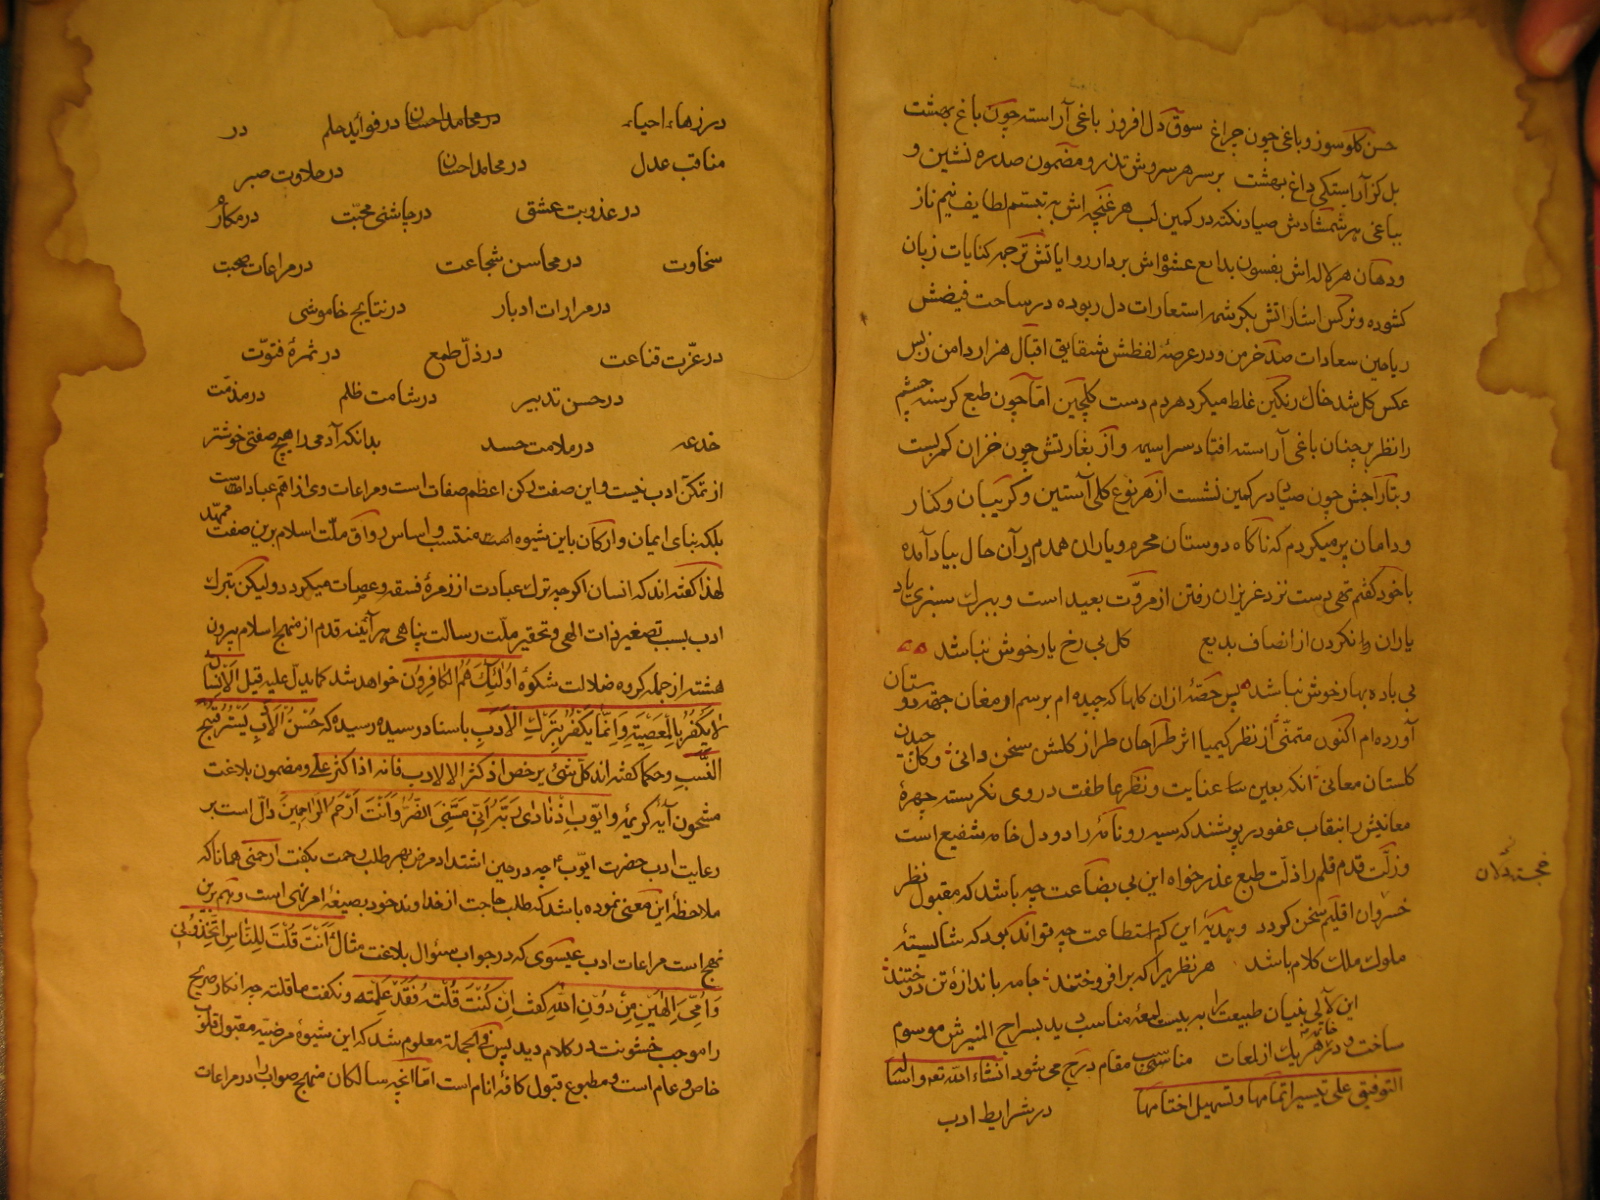 حسن گلو سوز و باغی چون چراغ سوق دل افروز باغی آراسته چون باغ بهشت
بل کز آراستگی داغ بهشت بر سر هر سروش تذرو مضمون صدره نشین و
بباغی هر شمشادش صیاد نکته در کمین لب هر غنچه اش به تبسم لطایف نیم ناز
و دهان هر لاله اش بفسون بدایع عشوه اش بردار روایاتش ترجمه کنایات زبان
کشوده و نرکس اشاراتش بکرشمه استعارات دل ربوده در ساحت فیضش
ریاحین سعادات صد خرمن و در عرصهٔ لفظش شقایق اقبال هزار دامن زبس
عکس کل شد خاک رنکین غلط میکرد هر دم دست کلچین اما چون طبع کرسنه چشم
را نظر بر چنان باغی آراسته افتاد سراسیمه و از بغارتش چون خزان کمر بست
و بتاراجش چون صیاد در کمین نشست از هر نوع کلی آستین و کریبان و کنار
و دامان پر میکردم که ناکاه دوستان محرم و یاران همدم در آن حال بیاد آمده
با خود کفتم تهی دست نزد عزیزان رفتن از مروّت بعید است و ببرک سبزی یاد
یاران وا نکردن از انصاف بدیع کل بی رخ یار خوش نباشد
بی باده بهار خوش نباشد پس حصّهٔ از ان کلها که چیده ام برسم ارمغان جهته دوستان
آورده ام اکنون متمنّی از نظر کیمیا اثر طراحان طراز کلشن سخن دانی و کل چیدن
کلستان معانی انکه بعین عنایت و نظر عاطفت در وی نکرسته چهرهٔ
معانیش را بنقاب عفو در پوشند که سیه رو نامه را دو دل خامه شفیع است
و زلّت قدم قلم را ذلّت طبع عذر خواه این بی بضاعت چه باشد که مقبول نظر
خسروان اقلیم سخن کردد و هدیهٔ این کم استطاعت چه تواند بود که شایستهٔ
ملوک ملک کلام باشد هر نظر را که بر افروختند جامه باندازهٔ تن دوختند
خجسته دلان
این لآلی بنیان طبیعت را به بیست لمعهٔ مناسب دید بسراج المنیرش موسوم
ساخت و در خاتمه هر یک از لمعات مناسب مقام درج می شود انشاء الله تع و اسأله
التوفیق علی تیسیر اتمامها و تسهیل اختتامها در شرایط ادب
در زهاء احیاء در محامد احسان در فواید حلم در
مناقب عدل در محامد احسان در حلاوت صبر
در عذوبت عشق در چاشنی محبّت در مکارم
سخاوت در محاسن شجاعت در مراعات صحبت
در مرارات ادبار در نتایج خاموشی
در عزّت قناعت در ذلّ طمع در ثمرهٔ فتوّت
در حسن تدبیر در شامت ظلم در مذمّت
خدعه در ملامت حسد بدانکه آدمی را هیچ صفتی خوشتر
از تمکّن ادب نیست و این صفت رکن اعظم صفات است و مراعات وی از اهم عبادات است
بلکه بنای ایمان و ارکان باین شیوه منتسب و اساس رواق ملّت اسلام برین صفت ممهّد
لهذا کفته اند که انسان اکرچه بترک عبادت از زمرهٔ فسقه و عصات میکردد و لیکن بترک
ادب بسبب تصغیر ذات الهی و تحقیر ملّت رسالت پناهی هر آینه قدم از منهج اسلام بیرون
هشته از جمله کروه ضلالت شکوهٔ اُولٰئِکَ هُمُ الکَافِرُون خواهد شد کما یدلّ علیه قیل الاَنسَانُ
لَا یَکفُرُ بِالمَعصِیَةِ وَ اِنَّمَا یَکفُرُ بِتَرکِ الاَدَبِ باسناد رسیده رسیده که حُسنُ الاَدَبِ یَستُرُ قَبِیحَ
النَّسَبِ و حکما کفته اند کلّ شیئ یرخص اذ کثر الا الادب فانه اذا کثر غلی و مضمون بلاغت
مشحون آیهٔ کریمهٔ و ایّوب اِذ نَادٰی رَبَّهُ اَنّی مَسَّنِیَ الضُّرُّ وَ اَنتَ اَرحَمُ الرَّاحِمِینَ دالّ است بر
رعایت ادب حضرت ایّوب چه در حین اشتداد مرض بهر طلب رحمت نکفت ارحمنی همانا که
ملاحظهٔ این معنی نموده باشد که طلب حاجت از خداوند خود بصیغهٔ امر نهی است و هم برین
نهج است مراعات ادب عیسوی که در جواب سئوال بلاغت مثال ءَاَنتَ قُلتَ لِلنَّاسِ اتَّخِذُونِی
وَ اُمِّیَ اِلٰهَینِ مِن دُونِ اللّٰهِ کفت اِن کُنتُ قُلتُهُ فَقَد عَلِمتَه و نکفت ما قلته چه انکار صریح
را موجب خشونت در کلام دید پس فی الجملة معلوم شد که این شیوهٔ مرضیّه مقبول قلوب
خاص و عام است و مطبوع قبول کافهٔ انام است اما آنچه سالکان منهج صواب را در مراعات